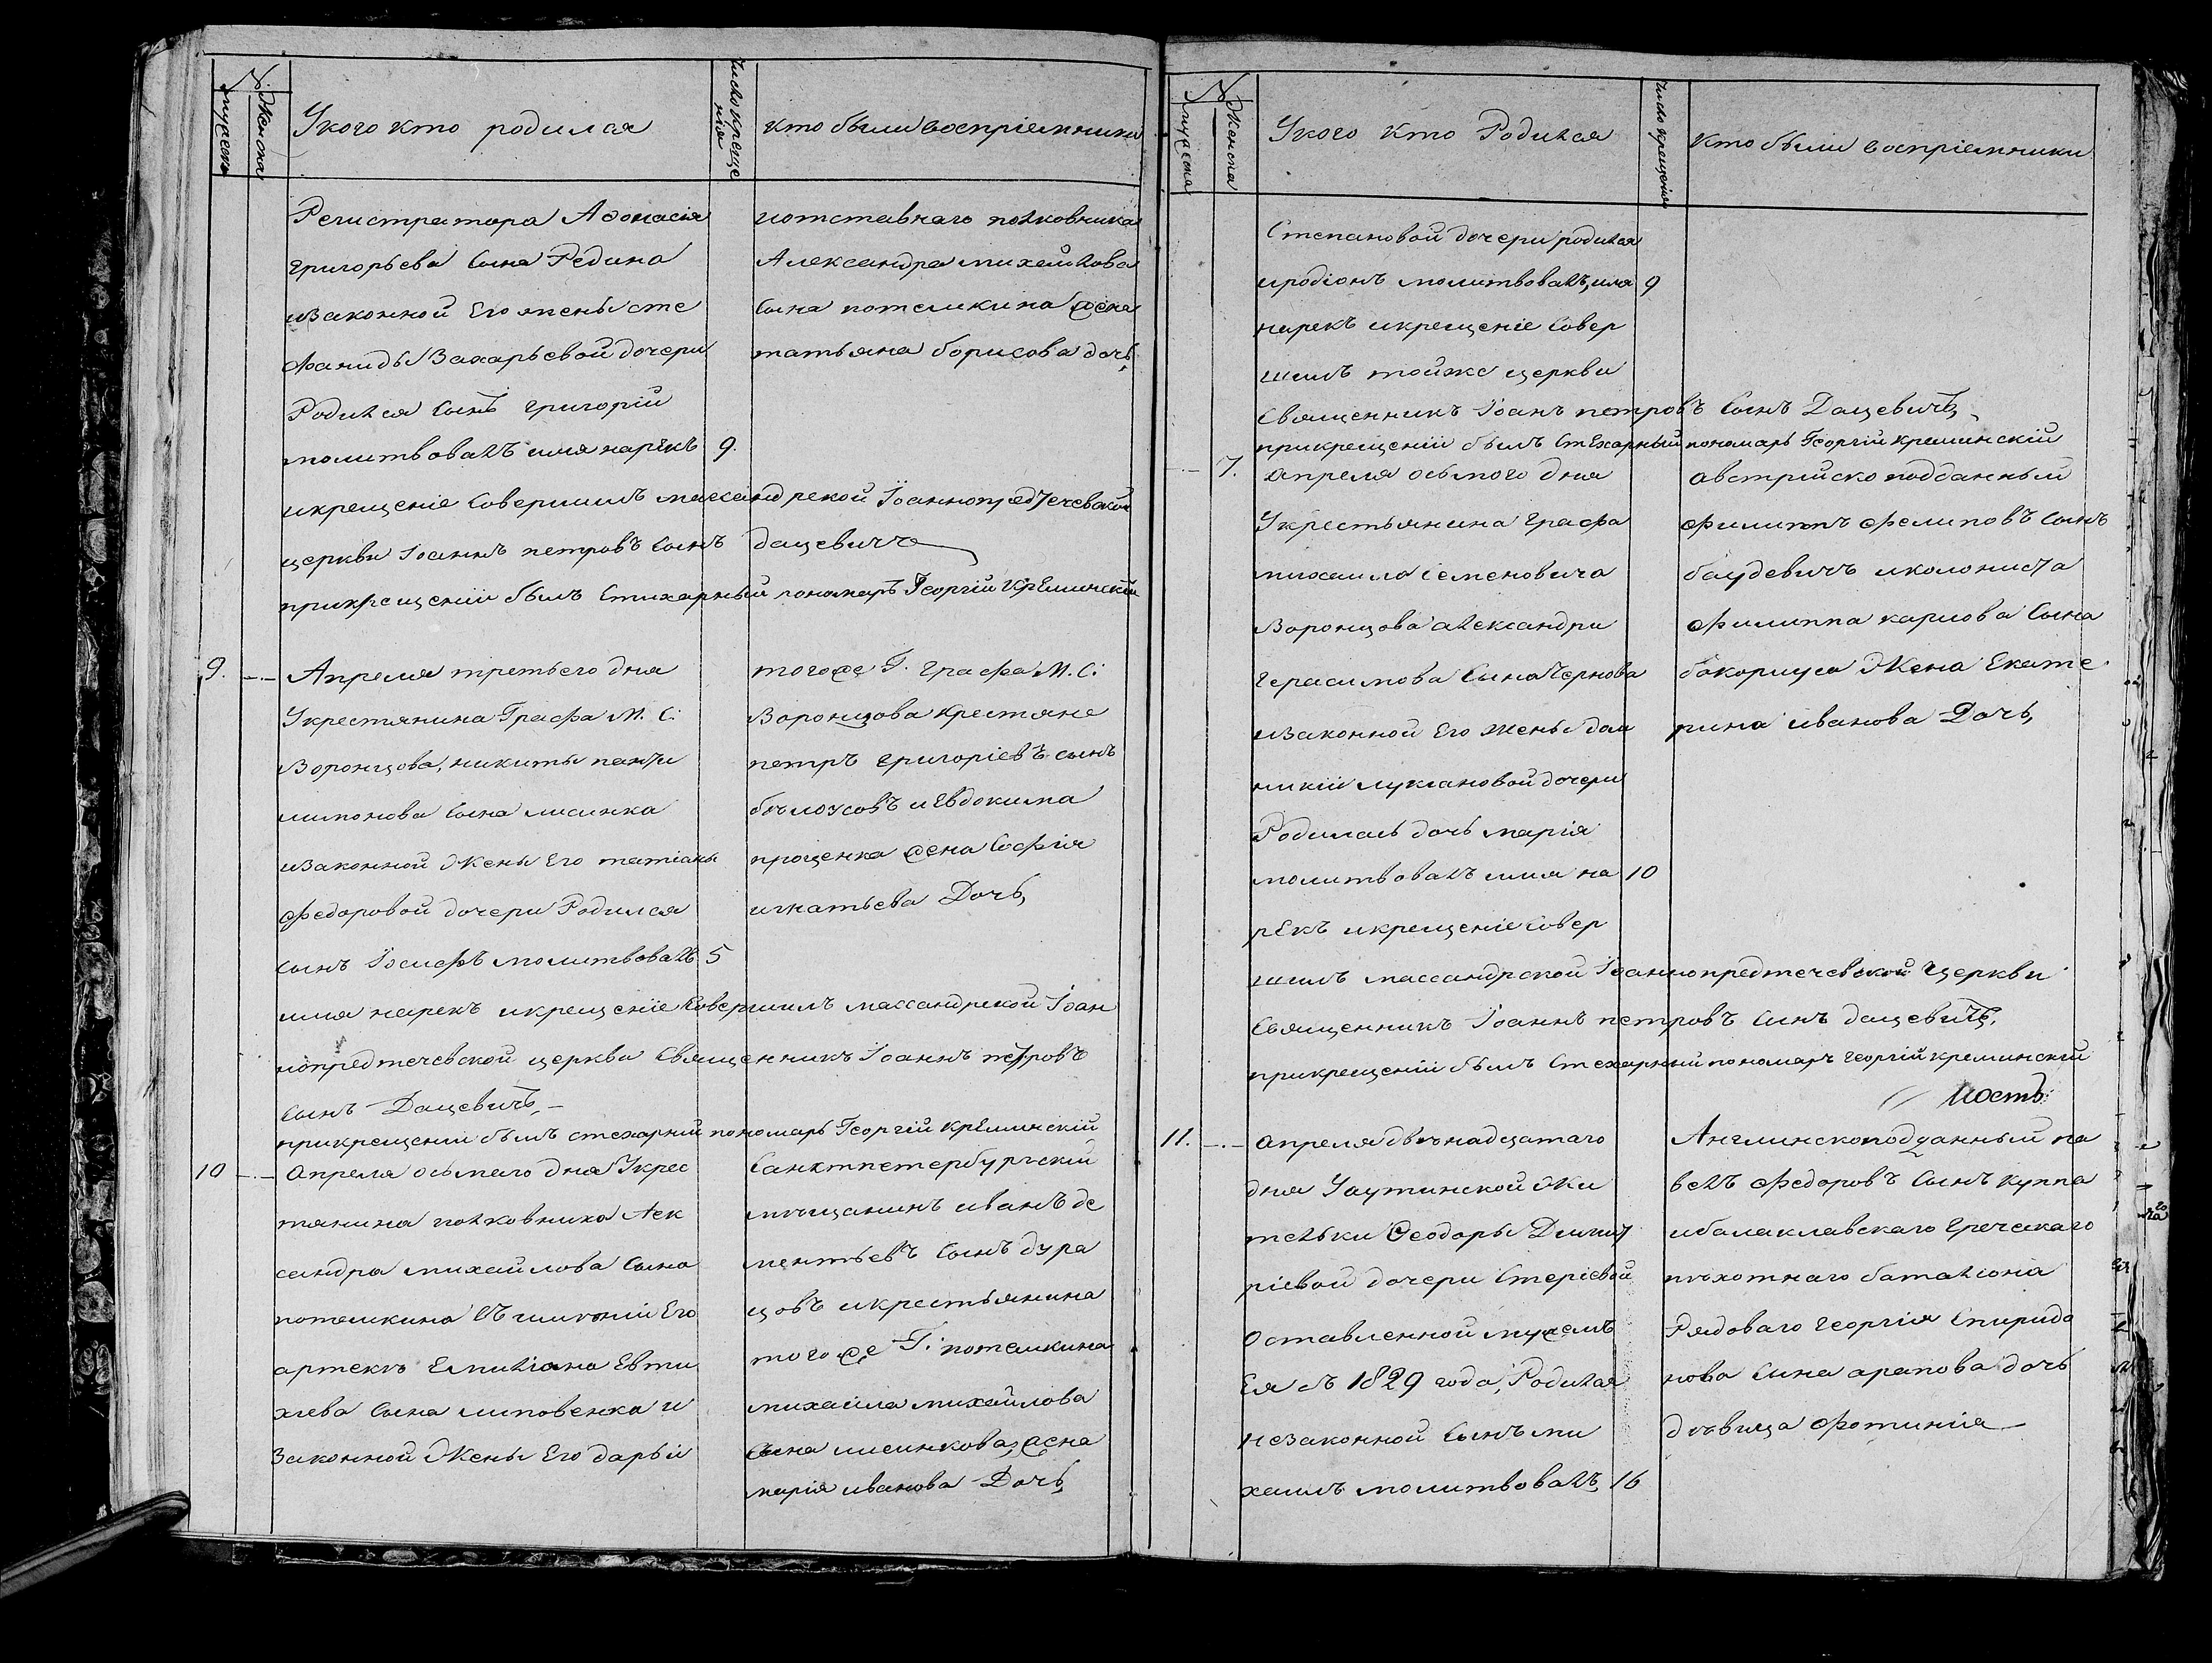 №
мужеска
Женска
У кого кто родился
число креще
нія
кто были воспріемники
Регистратора Афонасія
григорьева Сына Редина
изаконной Его жены сте
фаниды Захарьевой дочери
Родился Сынъ григорій
молитвовалъ имя нарѣкъ 9.
икрещеніе Совершилъ массандрской Іоаннопредтечевской
церкви Іоаннъ петровъ Сынъ дацевичъ
прикрещеніи былъ Стихарный пономарь Георгій Креминскій
иотставнаго полковника
Александра михайлова
Сына потемкина жена
татьяна борисова дочь,
9. Апреля третьего дня
Укрестянина Графа М. С:
Воронцова, никиты панти
лимонова Сына лисинка
изаконной Жены Его татіаны
федоровой дочери Родился
Сынъ Іосифъ молитвовалъ 5
имя нарекъ икрещеніе Совершилъ массандрской Іоан
нопредтечевской церкви Священникъ Іоаннъ петровъ
Сынъ Дацевичъ,
прикрещении былъ стехарний пономарь Георгій Креминскій
тогоже Г. графа М. С:
Воронцова крестяне
петръ григоріевъ сынъ
бѣлоусовъ и Евдокима
проценка жена Софія
игнатьева Дочь,
10 Апреля осьмаго дня Укрес
тянина полковника Алек
сандра михайлова Сына
потемкина въ имѣніи Его
артекъ Емиліана Евти
хіева Сына липовенка и
Законной Жены Его дарьи
Санктпетербургскій
мѣщанинъ иванъ де
ментьевъ Сынъ дура
цовъ икрестьянина
тогоже Г: потемкина
михаила михайлова
Сына лисинкова, жена
марія иванова Дочь,
№
мужеска
Женска
У кого кто Родился
число крещенія
Кто были воспріемники
Степановой дочери родился
иродіонъ молитвовалъ, имя 9
нарекъ икрещеніе Совер
шилъ тойже церкви
Священникъ Іоанъ петровъ Сынъ Дацевичъ,
прикрещеніи былъ Стехарный пономарь Георгій креминскій
7. Апреля осьмого дня
Укрестьянина графа
михаила Семеновича
Воронцова александри
герасимова Сына Чернова
изаконной Его жены дом
никіи лукіановой дочери
Родилась дочь марія
молитвовалъ имя на 10
рекъ икрещеніе Совер
шилъ массандрской Іоаннопредтечевской Церкви
Священникъ Іоаннъ петровъ Сынъ дацевичъ.
прикрещеніи былъ Стехарный пономарь георгій креминскій
австрійско подданный
филиппъ фелиповъ Сынъ
баудевичъ иколониста
филиппа карлова Сына
бокориуса Жена Екате
рина иванова Дочь,
11. Апреля двѣнадцатаго
дня Уаутинской Жи
тельки Феодоры Димит
ріевой дочери Стеріевой
Оставленной мужемъ
Ея съ 1829 года, Родился
незаконной Сынъ ми
хаилъ молитвовалъ, 16
Англинскоподданный па
велъ федоровъ Сынъ куппа
ибалаклавскаго Греческаго
пѣхотнаго баталіона
Рядоваго георгія Спиридо
нова Сына арапова дочь
дѣвица Фотинія